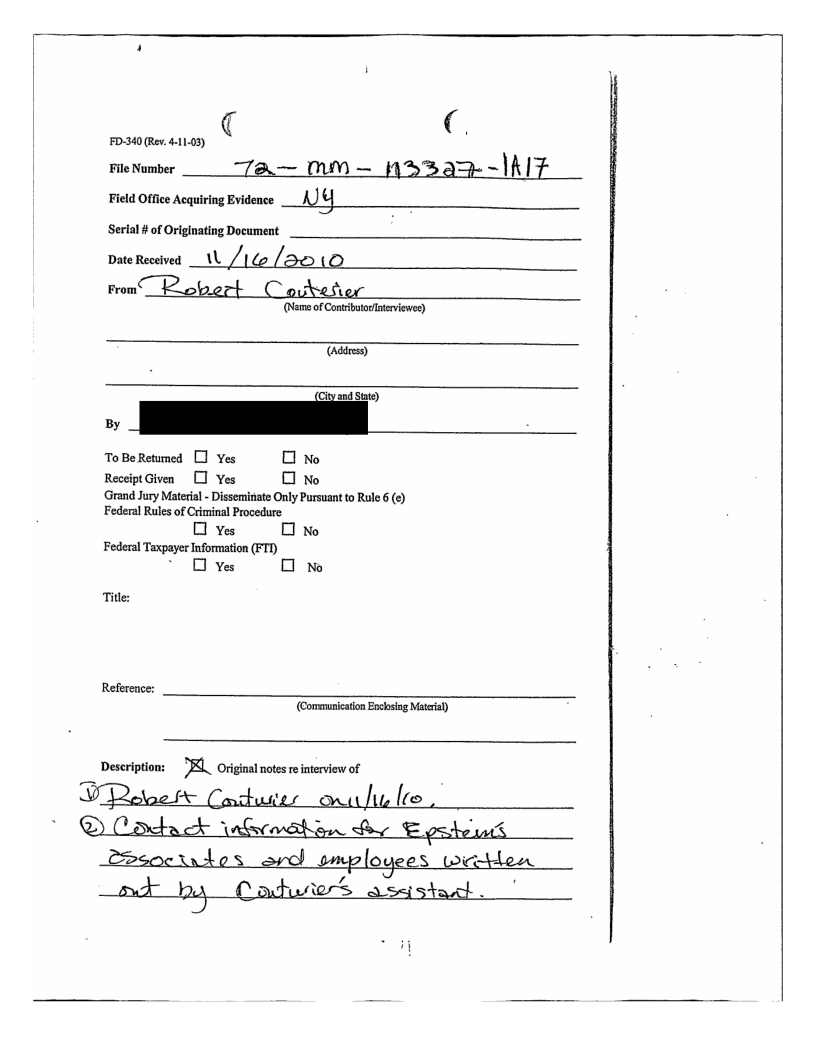 FD-340 (Rev. 4-11-03)
File Number 72 - mm - 113327 - 1A17
Field Office Acquiring Evidence NY
Serial # of Originating Document
Date Received 11/16/2010
From Robert Couterier
(Name of Contributor/Interviewee)
(Address)
(City and State)
By
To Be Returned ☐ Yes ☐ No
Receipt Given ☐ Yes ☐ No
Grand Jury Material - Disseminate Only Pursuant to Rule 6 (e)
Federal Rules of Criminal Procedure
☐ Yes ☐ No
Federal Taxpayer Information (FTI)
☐ Yes ☐ No
Title:
Reference:
(Communication Enclosing Material)
Description: ☒ Original notes re interview of
① Robert Couturier on 11/16/10.
② Contact information for Epstein's
associates and employees written
out by Couturier's assistant.